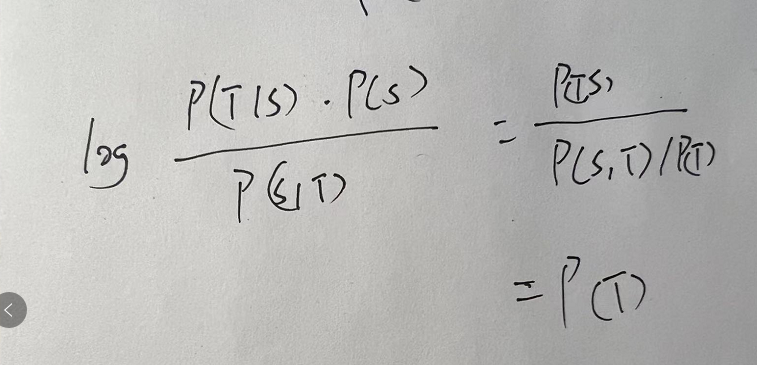 log P(T|S) · P(S) / P(S,T) = P(T,S) / P(S,T)/P(T)
= P(T)